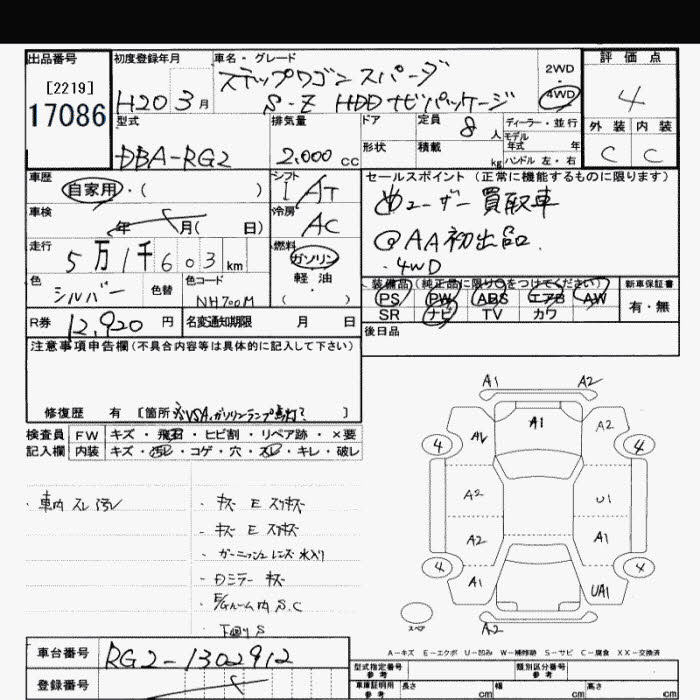 出品番号
[2219]
17086
初度登録年月
H20 3月
車名・グレード
ステップワゴン スパーダ
S-Z HDDナビパッケージ
2WD
4WD
評価点
4
外装 内装
C C
型式
DBA-RG2
排気量
2,000 cc
ドア
形状
定員 8人
積載 kg
ディーラー・並行
モデル
年式 年
ハンドル 左・右
車歴
自家用・( )
車検
年 月( 日)
走行
5万1千603 km
色
シルバー
色替
色コード
NH700M
シフト
I AT
冷房
AC
燃料
ガソリン
軽油
( )
セールスポイント (正常に機能するものに限ります)
ユーザー買取車
@AA初出品.
・4WD
装備品(純正品に限り○をつけてください)
PS PW ABS エアB AW
SR ナビ TV カワ
新車保証書
有・無
後日品
R券 12,920 円
名変通知期限 月 日
注意事項申告欄(不具合内容等は具体的に記入して下さい)
修復歴 有 [箇所 VSA,ガソリンランプ ]
検査員 FW キズ・飛石・ヒビ割・リペア跡・×要
記入欄 内装 キズ・汚レ・コゲ・穴・スレ・キレ・破レ
・車内 スレ 汚レ
・キズ E スリキズ
・キズ E スリキズ
・ガーニッシュ レンズ 水入り
・Dミラー キズ
E/Gルーム内 S.C
S
A1 A2
A1
A2
4 4
A2 U1
A2 A1
4 4
A1 UA1
スペア
A2
A-キズ E-エクボ U-凹み W-補修跡 S-サビ C-腐食 XX-交換済
車台番号 RG2-1302912
登録番号
型式指定番号
参考
類別区分番号
参考
車庫証明用
参考
長さ cm 幅 cm 高さ cm